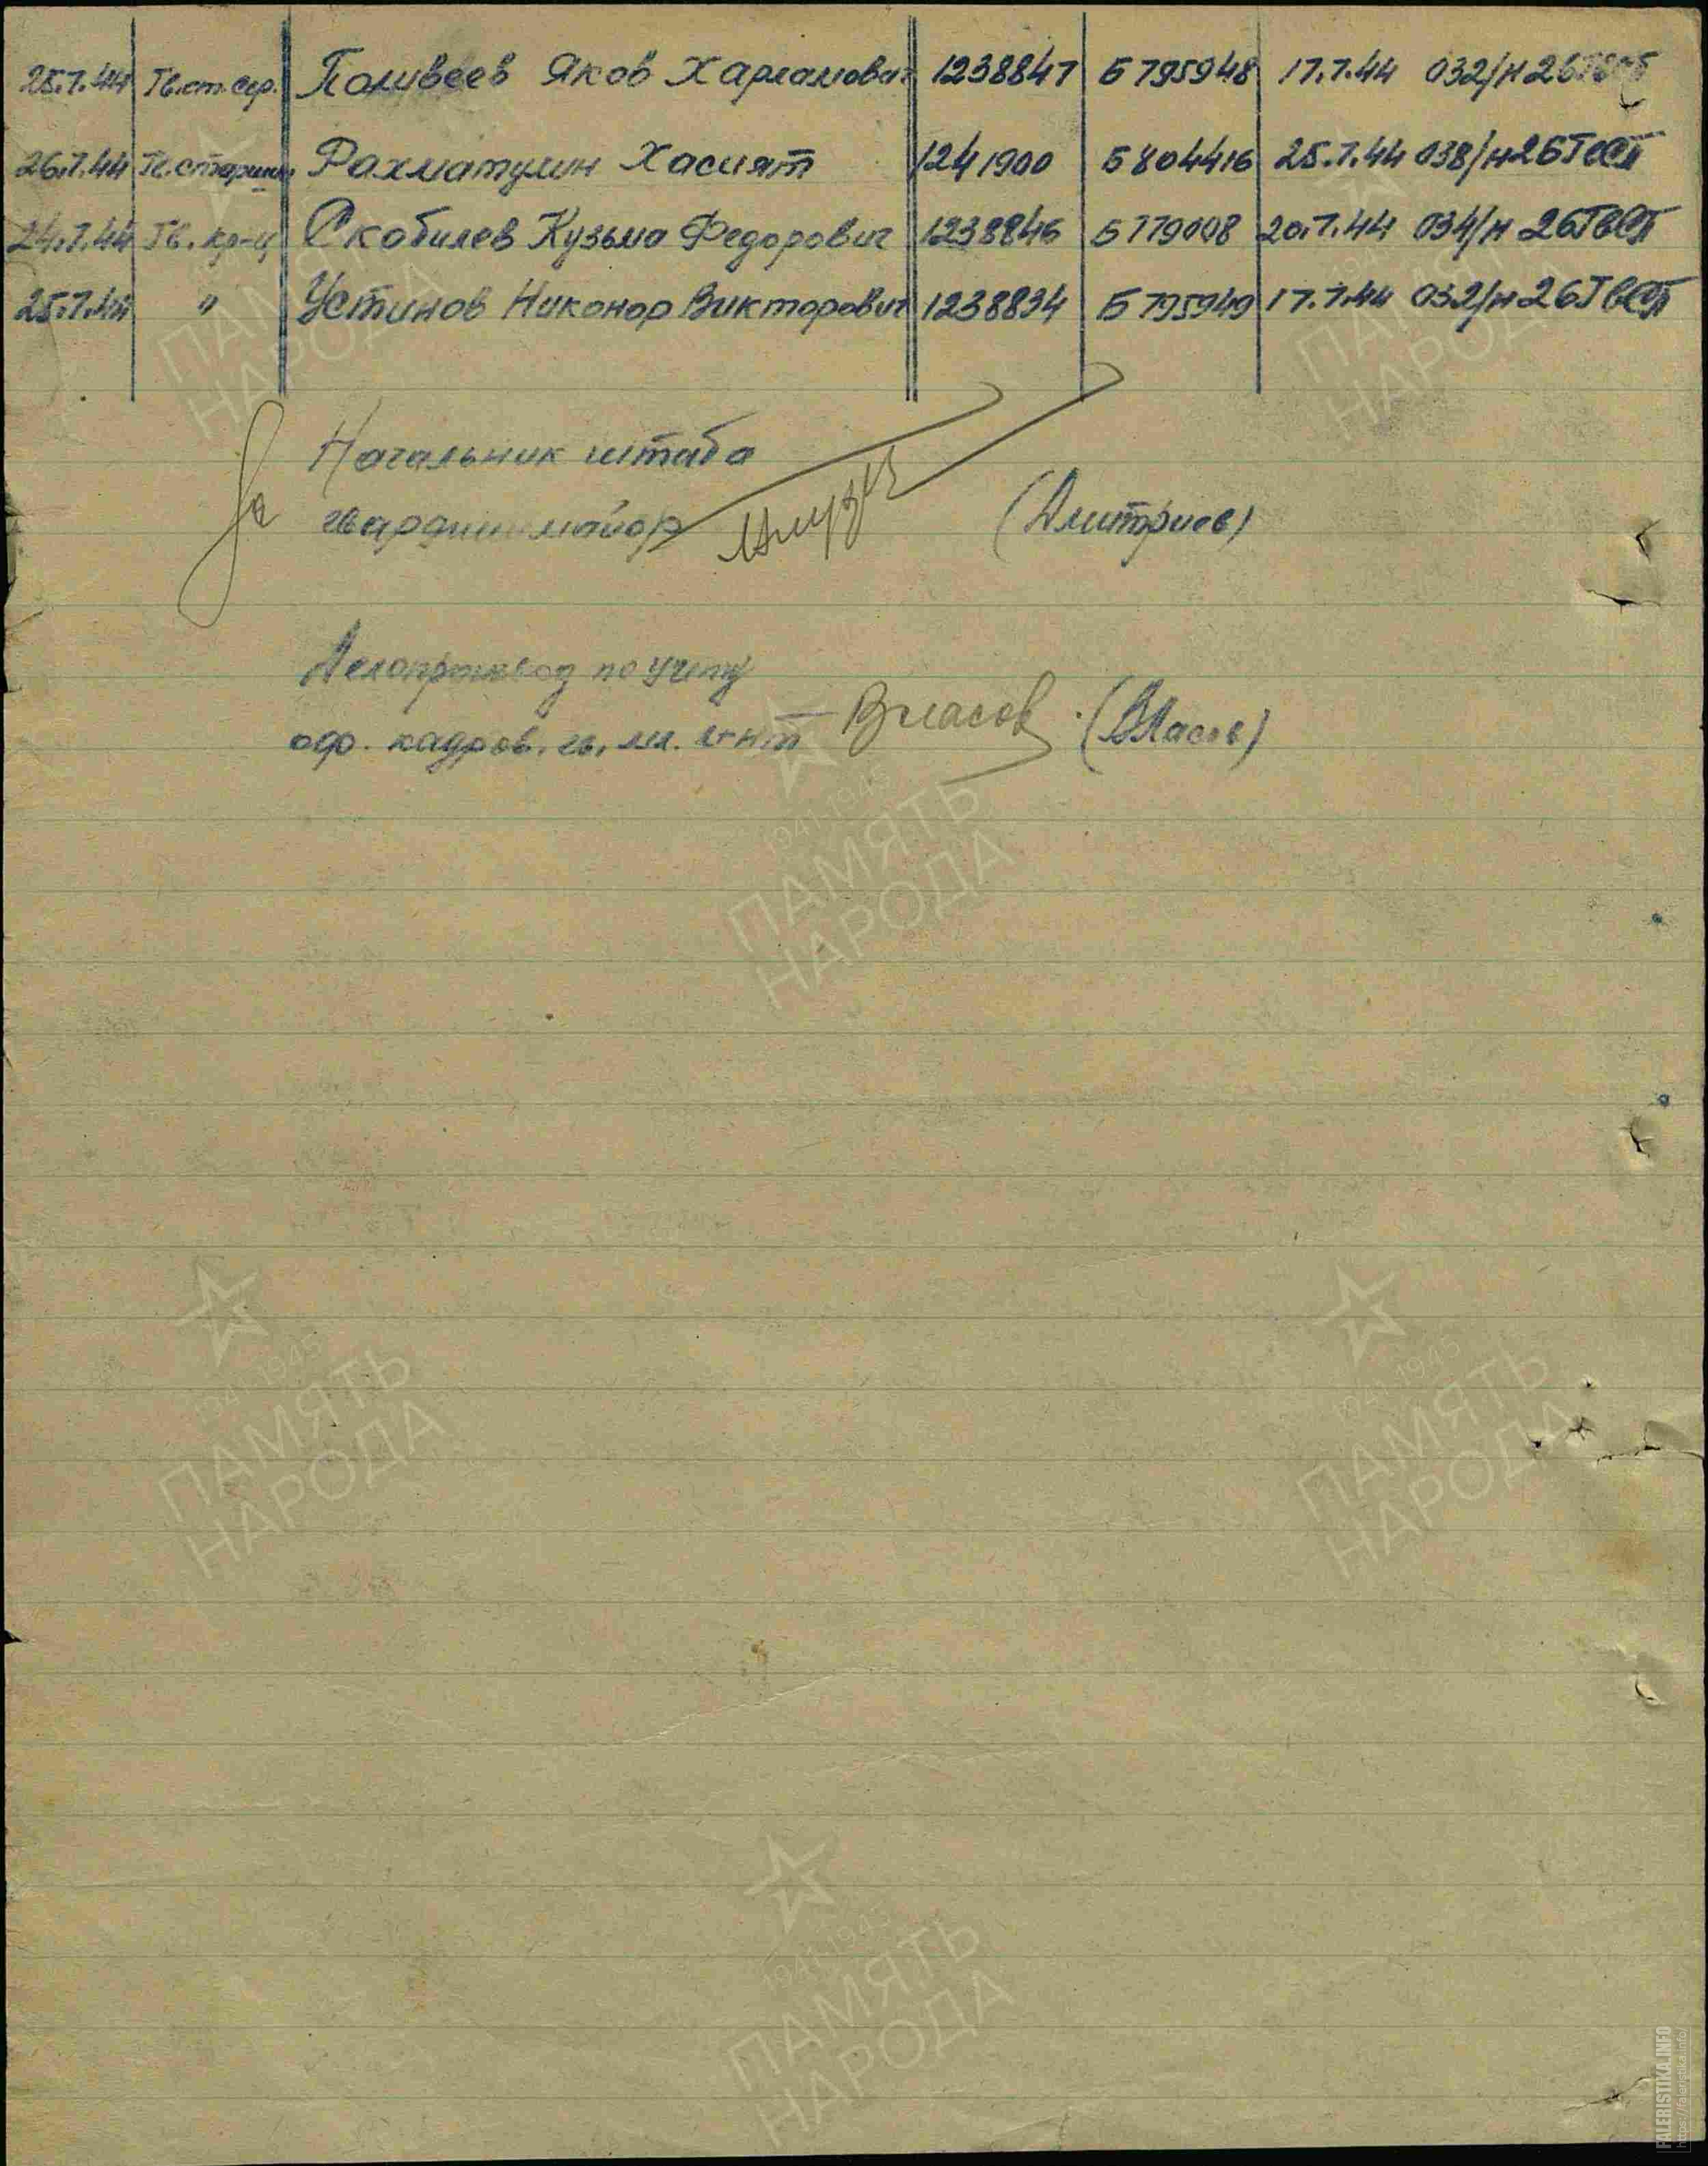 25.7.44 Гв.ст.сер. Поливеев Яков Харламович 1238847 Б 795948 17.7.44 032/н 26 ГвСП
26.7.44 Гв.старшина Рахматулин Хасият 1241900 Б 804416 25.7.44 038/н 26 ГвСП
24.7.44 Гв. кр-ц Скобилев Кузьма Федорович 1238846 Б 779008 20.7.44 034/н 26 ГвСП
25.7.44 " Устинов Никонор Викторович 1238834 Б 795949 17.7.44 032/н 26 ГвСП
Начальник штаба
За гвардии майор (Дмитриев)
Делопроизвод по учету
оф. кадров. гв. мл. л-нт Власов (Власов)
1941-1945
ПАМЯТЬ
НАРОДА
FALERISTIKA.INFO
https://faleristika.info/